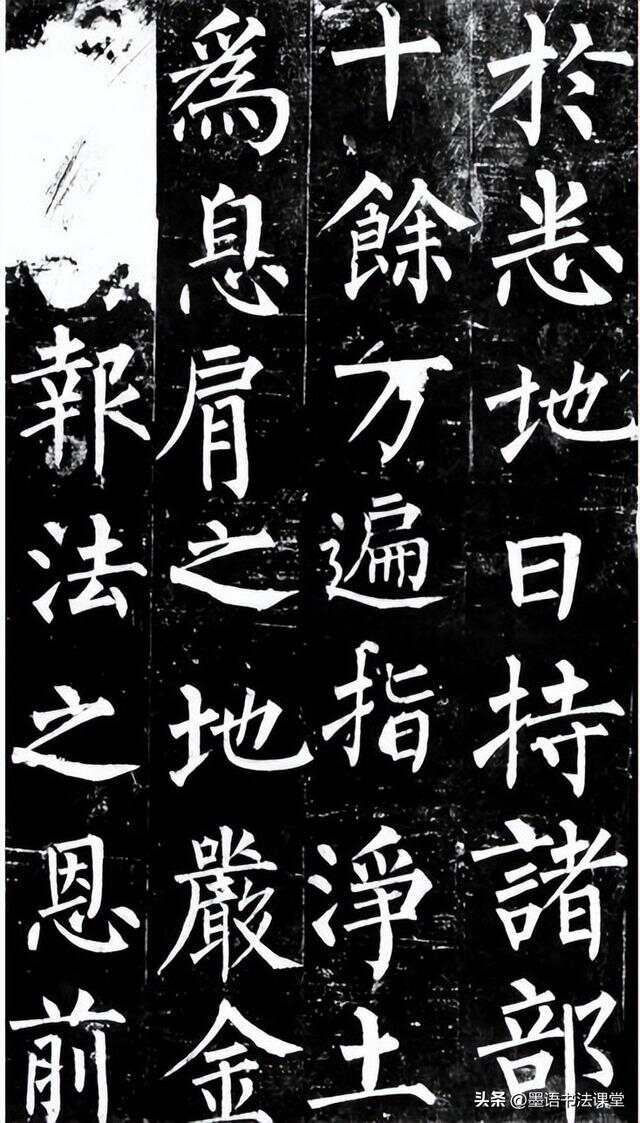 於悉地日持諸部
十餘万遍指淨土
為息肩之地嚴金
報法之恩前
头条 @墨语书法课堂